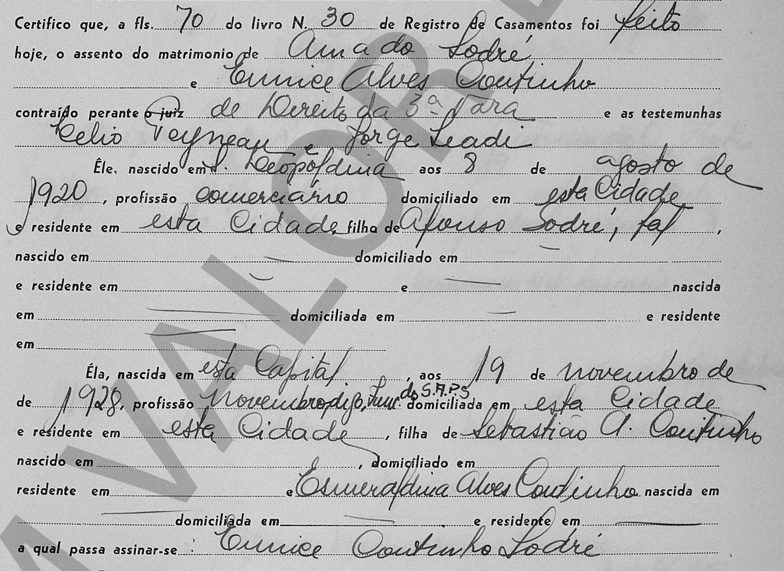 Certifico que, a fls. 70 do livro N. 30 de Registro de Casamentos foi feito
hoje, o assento do matrimonio de Amado Sodré
e Eunice Alves Coutinho
contraído perante o juiz de Direito da 3ª Vara e as testemunhas
Celio e Jorge Leadi
Êle, nascido em Leopoldina aos 8 de agosto de
1920, profissão comerciário domiciliado em esta Cidade
e residente em esta Cidade, filho de Afonso Sodré, fal
nascido em domiciliado em
e residente em e nascida
em domiciliada em e residente
em
Éla, nascida em esta Capital, aos 19 de novembro de
de 1928, profissão novembro digo, func. do S.A.P.S domiciliada em esta Cidade
e residente em esta Cidade, filha de Sebastião A. Coutinho
nascido em , domiciliado em
residente em e Esmeraldina Alves Coutinho nascida em
domiciliada em e residente em
a qual passa assinar-se: Eunice Coutinho Sodré
VALOR